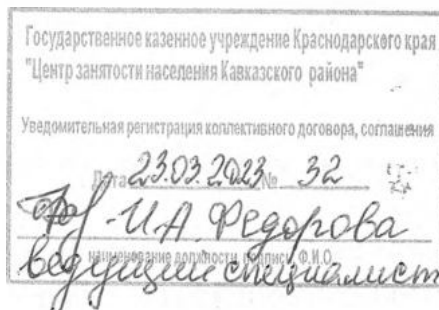 Государственное казенное учреждение Краснодарского края
"Центр занятости населения Кавказского района"
Уведомительная регистрация коллективного договора, соглашения
Дата 23.03.2023 № 32
И.А. Федорова
наименование должности, подпись, Ф.И.О.
ведущий специалист